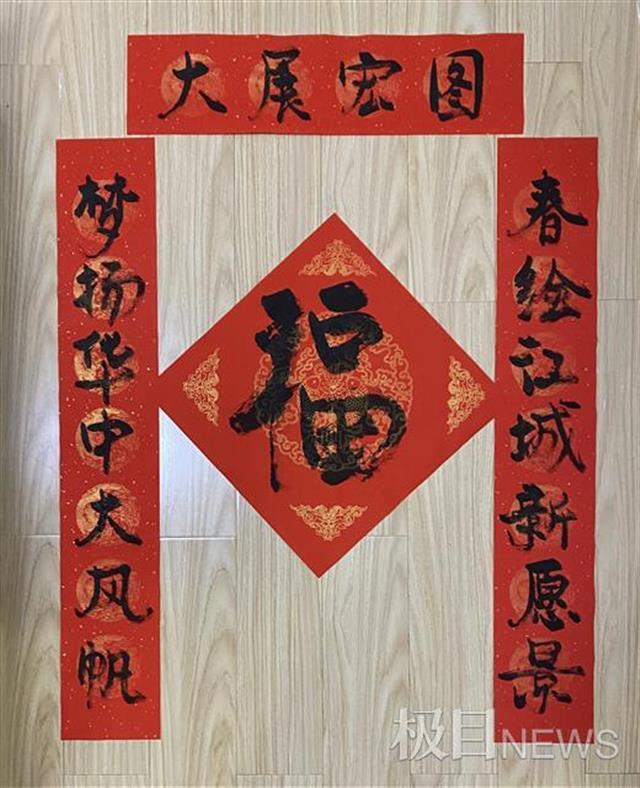 大展宏图
春绘江城新愿景
梦扬华中大风帆
福
极目NEWS